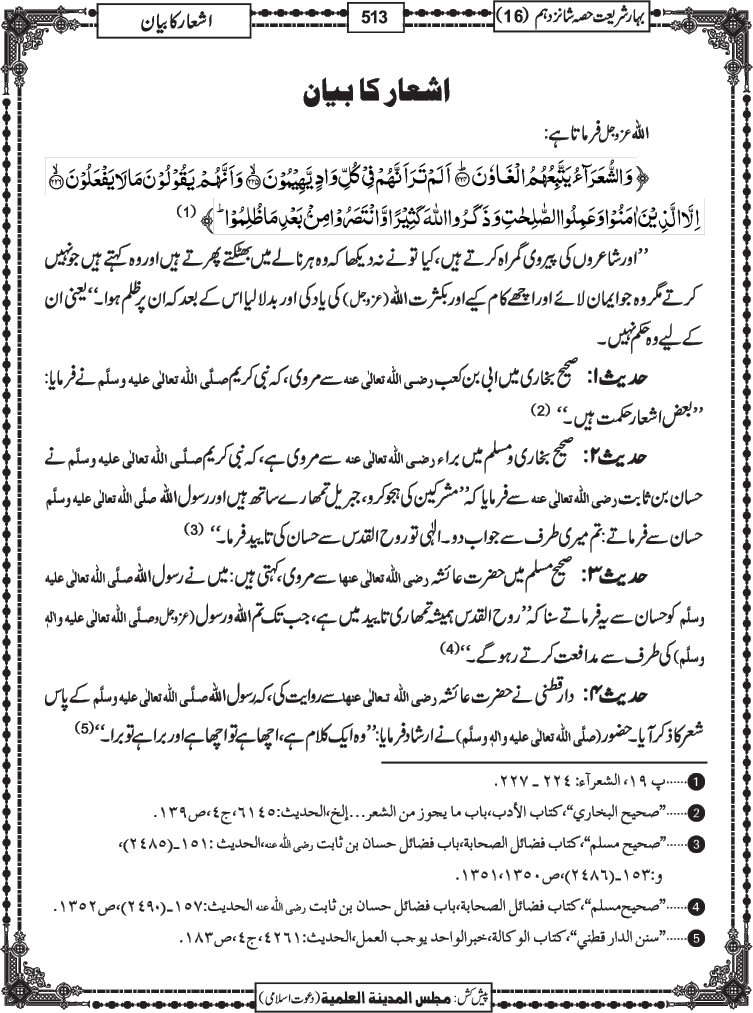 بہار شریعت حصہ شانزدہم (16)
513
اشعار کا بیان
اشعار کا بیان
اللہ عزوجل فرماتا ہے:
﴿ وَالشُّعَرَآءُ یَتَّبِعُهُمُ الْغَاوٗنَ ؕ﴿۲۲۴﴾ اَلَمْ تَرَ اَنَّهُمْ فِیْ كُلِّ وَادٍ یَّهِیْمُوْنَ ۙ﴿۲۲۵﴾ وَ اَنَّهُمْ یَقُوْلُوْنَ مَا لَا یَفْعَلُوْنَ ۙ﴿۲۲۶﴾
اِلَّا الَّذِیْنَ اٰمَنُوْا وَ عَمِلُوا الصّٰلِحٰتِ وَ ذَكَرُوا اللّٰهَ كَثِیْرًا وَّ انْتَصَرُوْا مِنْۢ بَعْدِ مَا ظُلِمُوْا ؕ ﴾ (1)
’’اور شاعروں کی پیروی گمراہ کرتے ہیں، کیا تونے نہ دیکھا کہ وہ ہر نالے میں بھٹکتے پھرتے ہیں اور وہ کہتے ہیں جو نہیں
کرتے مگر وہ جو ایمان لائے اور اچھے کام کیے اور بکثرت اللہ (عزوجل) کی یاد کی اور بدلا لیا اس کے بعد کہ ان پر ظلم ہوا۔‘‘ یعنی ان
کے لیے وہ حکم نہیں۔
حدیث ۱: صحیح بخاری میں ابی بن کعب رضی اللہ تعالٰی عنہ سے مروی، کہ نبی کریم صلَّی اللہ تعالٰی علیہ وسلَّم نے فرمایا:
’’بعض اشعار حکمت ہیں۔‘‘ (2)
حدیث ۲: صحیح بخاری و مسلم میں براء رضی اللہ تعالٰی عنہ سے مروی ہے، کہ نبی کریم صلَّی اللہ تعالٰی علیہ وسلَّم نے
حسان بن ثابت رضی اللہ تعالٰی عنہ سے فرمایا کہ ’’مشرکین کی ہجو کرو، جبریل تمھارے ساتھ ہیں اور رسول اللہ صلَّی اللہ تعالٰی علیہ وسلَّم
حسان سے فرماتے: تم میری طرف سے جواب دو۔ الٰہی تو روح القدس سے حسان کی تایید فرما۔‘‘ (3)
حدیث ۳: صحیح مسلم میں حضرت عائشہ رضی اللہ تعالٰی عنھا سے مروی، کہتی ہیں: میں نے رسول اللہ صلَّی اللہ تعالٰی علیہ
وسلَّم کو حسان سے یہ فرماتے سنا کہ ’’روح القدس ہمیشہ تمھاری تایید میں ہے، جب تک تم اللہ و رسول (عزوجل وصلَّی اللہ تعالٰی علیہ والہٖ
وسلَّم) کی طرف سے مدافعت کرتے رہوگے۔‘‘ (4)
حدیث ۴: دارقطنی نے حضرت عائشہ رضی اللہ تعالٰی عنھا سے روایت کی، کہ رسول اللہ صلَّی اللہ تعالٰی علیہ وسلَّم کے پاس
شعر کا ذکر آیا۔ حضور (صلَّی اللہ تعالٰی علیہ والہٖ وسلَّم) نے ارشاد فرمایا: ’’وہ ایک کلام ہے، اچھا ہے تو اچھا ہے اور برا ہے تو برا۔‘‘ (5)
1 ......پ ۱۹، الشعرآء: ۲۲۴ ۔ ۲۲۷.
2 ......”صحیح البخاري“، کتاب الأدب، باب ما یجوز من الشعر...إلخ، الحدیث: ۶۱۴۵، ج۴، ص۱۳۹.
3 ......”صحیح مسلم“، کتاب فضائل الصحابة، باب فضائل حسان بن ثابت رضی اللہ عنہ، الحدیث: ۱۵۱۔(۲۴۸۵)،
و:۱۵۳۔(۲۴۸۶)، ص۱۳۵۰، ۱۳۵۱.
4 ......”صحیح مسلم“، کتاب فضائل الصحابة، باب فضائل حسان بن ثابت رضی اللہ عنہ الحدیث: ۱۵۷۔(۲۴۹۰)، ص۱۳۵۲.
5 ......”سنن الدار قطني“، کتاب الوکالة، خبر الواحد یوجب العمل، الحدیث: ۴۲۶۱، ج۴، ص۱۸۳.
پیش کش: مجلس المدینة العلمیة (دعوت اسلامی)